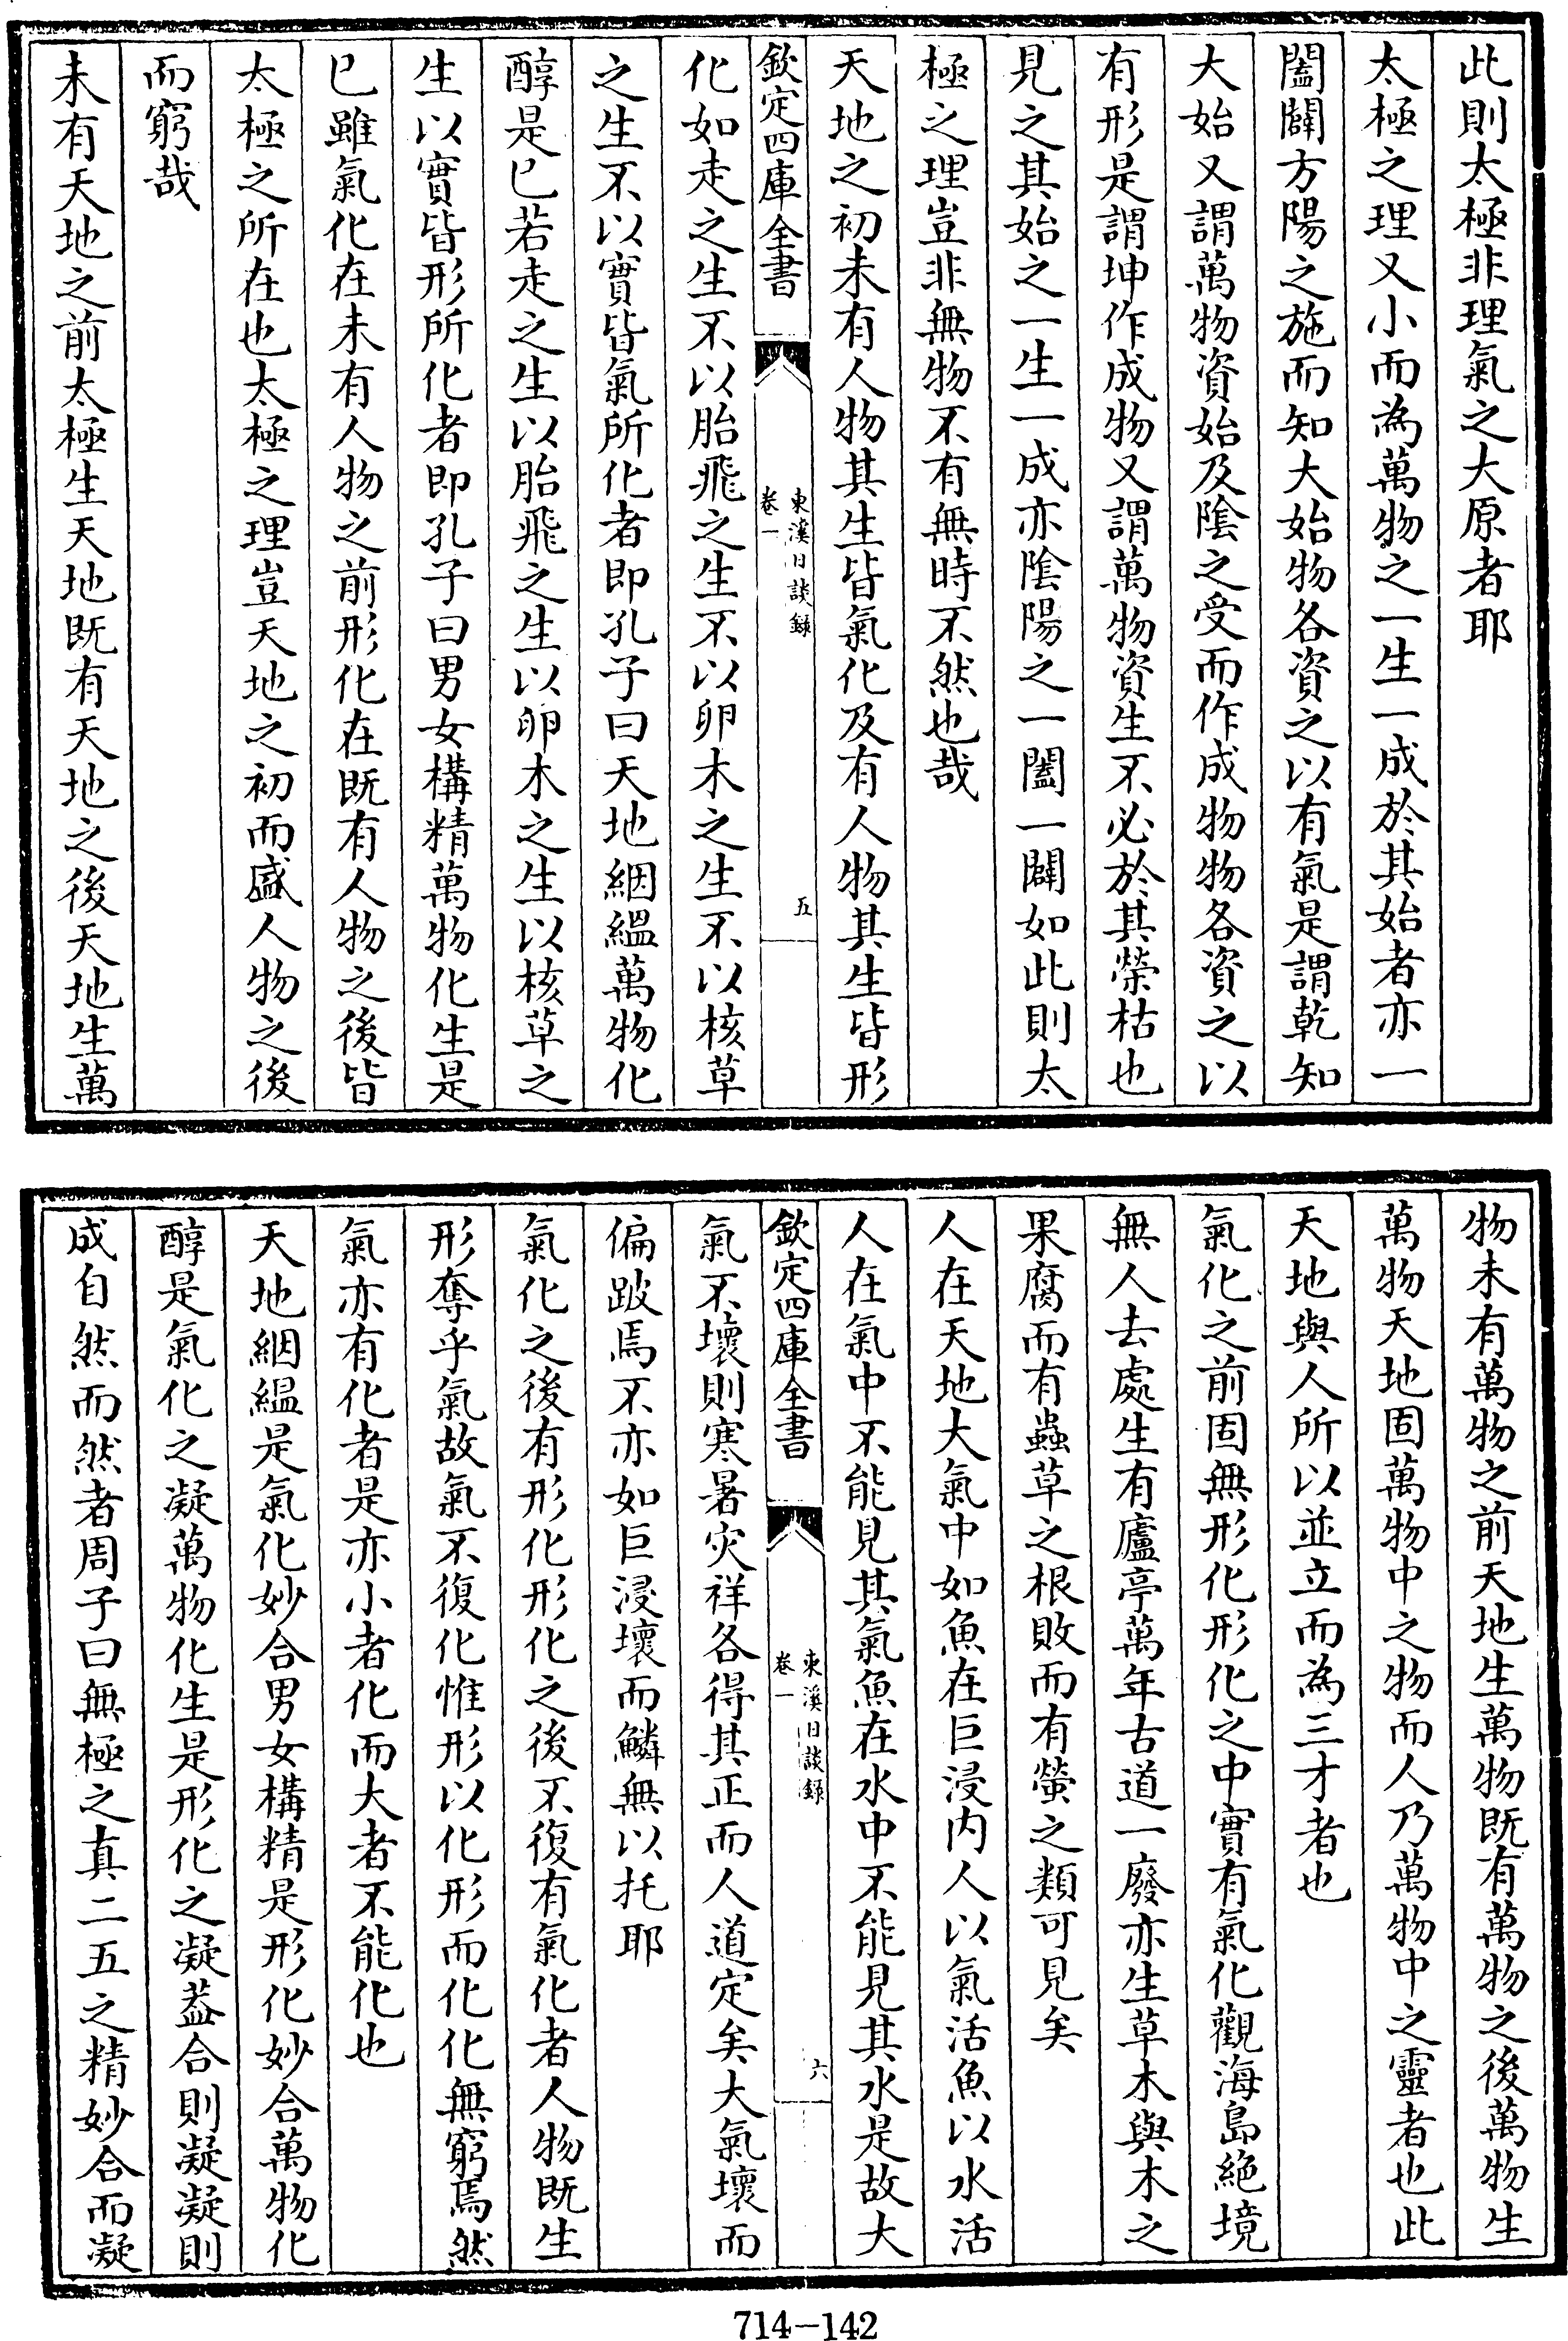 此則太極非理氣之大原者耶
太極之理又小而為萬物之一生一成於其始者亦一
闔闢方陽之施而知大始物各資之以有氣是謂乾知
大始又謂萬物資始及陰之受而作成物物各資之以
有形是謂坤作成物又謂萬物資生不必於其榮枯也
見之其始之一生一成亦陰陽之一闔一闢如此則太
極之理豈非無物不有無時不然也哉
天地之初未有人物其生皆氣化及有人物其生皆形
欽定四庫全書
東溪日談錄
卷一
五
化如走之生不以胎飛之生不以卵木之生不以核草
之生不以實皆氣所化者即孔子曰天地絪縕萬物化
醇是已若走之生以胎飛之生以卵木之生以核草之
生以實皆形所化者即孔子曰男女構精萬物化生是
已雖氣化在未有人物之前形化在既有人物之後皆
太極之所在也太極之理豈天地之初而盛人物之後
而窮哉
未有天地之前太極生天地既有天地之後天地生萬
物未有萬物之前天地生萬物既有萬物之後萬物生
萬物天地固萬物中之物而人乃萬物中之靈者也此
天地與人所以並立而為三才者也
氣化之前固無形化形化之中實有氣化觀海島絕境
無人去處生有廬亭萬年古道一廢亦生草木與木之
果腐而有蟲草之根敗而有螢之類可見矣
人在天地大氣中如魚在巨浸内人以氣活魚以水活
人在氣中不能見其氣魚在水中不能見其水是故大
欽定四庫全書
東溪日談錄
卷一
六
氣不壞則寒暑灾祥各得其正而人道定矣大氣壞而
偏跛焉不亦如巨浸壞而鱗無以托耶
氣化之後有形化形化之後不復有氣化者人物既生
形奪乎氣故氣不復化惟形以化形而化化無窮焉然
氣亦有化者是亦小者化而大者不能化也
天地絪縕是氣化妙合男女構精是形化妙合萬物化
醇是氣化之凝萬物化生是形化之凝葢合則凝凝則
成自然而然者周子曰無極之真二五之精妙合而凝
714—142